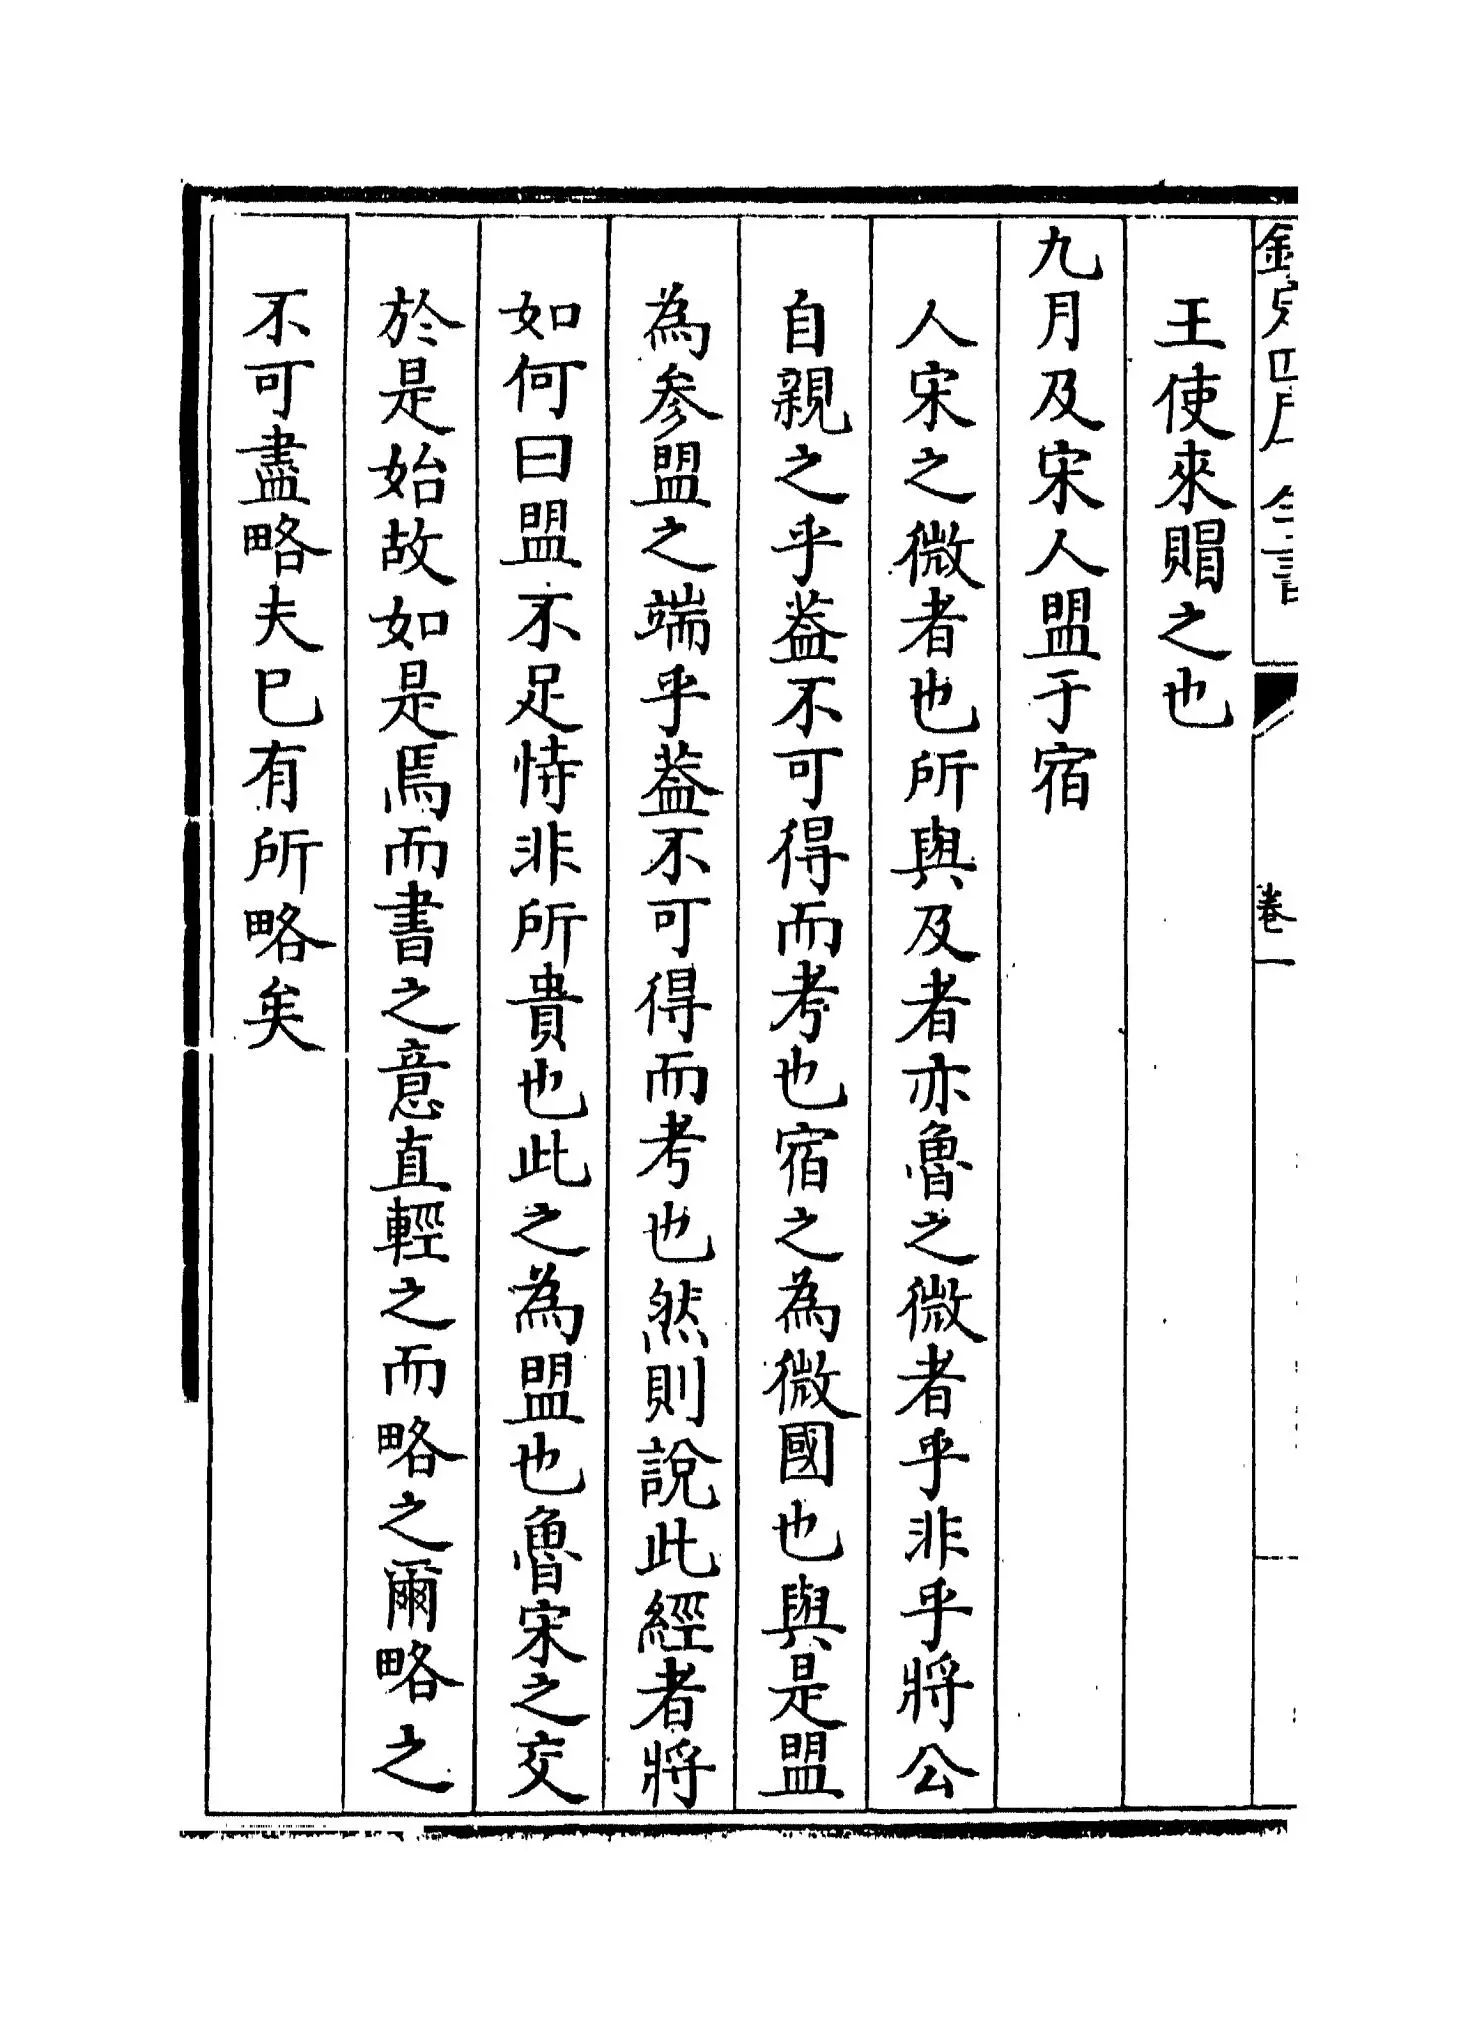 欽定四庫全書 卷一
王使來賵之也
九月及宋人盟于宿
人宋之微者也所與及者亦魯之微者乎非乎將公
自親之乎葢不可得而考也宿之為微國也與是盟
為参盟之端乎葢不可得而考也然則說此經者將
如何曰盟不足恃非所貴也此之為盟也魯宋之交
於是始故如是焉而書之意直輕之而略之爾略之
不可盡略夫已有所略矣